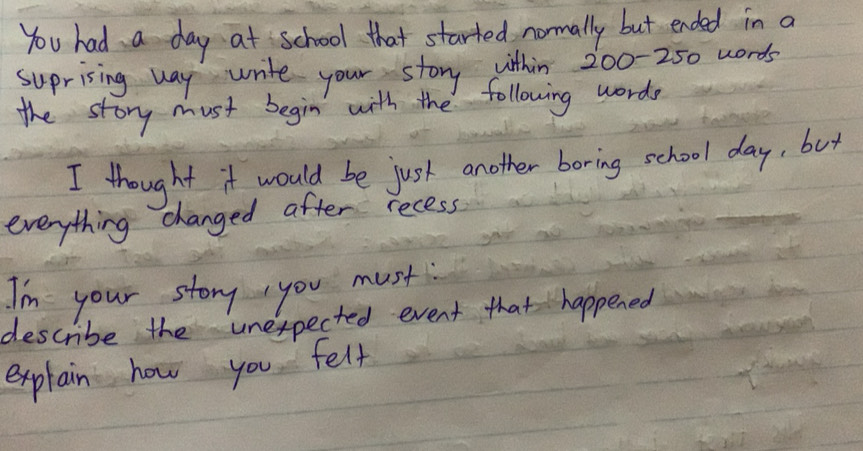 You had a day at school that started normally but ended in a
suprising way write your story within 200-250 words
the story must begin with the following words
I thought it would be just another boring school day, but
everything changed after recess
Im your story, you must:
describe the unexpected event that happened
explain how you felt